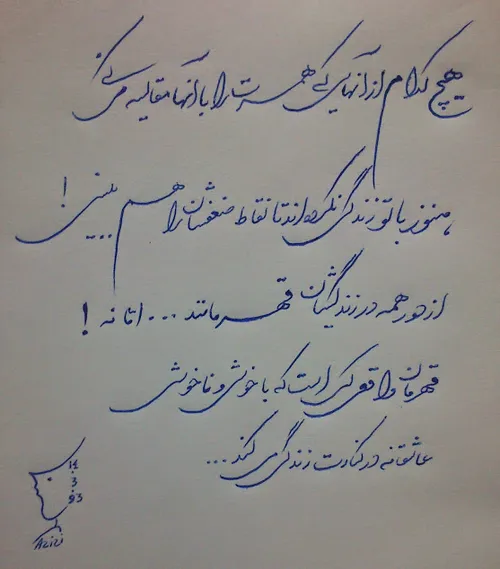 هیچ کدام از آنهایی که همسرت را با آنها مقایسه می کنی
هنوز با تو زندگی نکرده اند تا نقاط ضعفشان را هم ببینی !
از دور همه در زندگیشان قهرمانند ... اما نه !
قهرمان واقعی کسی است که با خوشی و ناخوشی
عاشقانه در کنارت زندگی می کند ...
Azizi